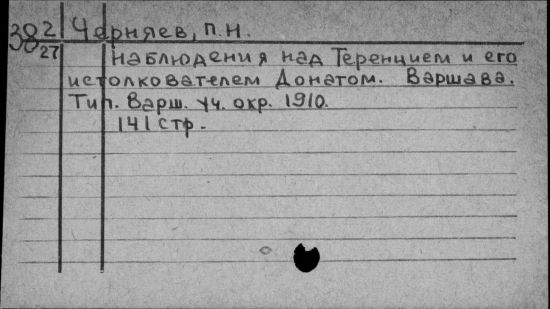 382 Черняев, П.Н.
27 Наблюдения над Теренцием и его
истолкователем Донатом. Варшава.
Тип. Варш. уч. окр. 1910.
141 стр.